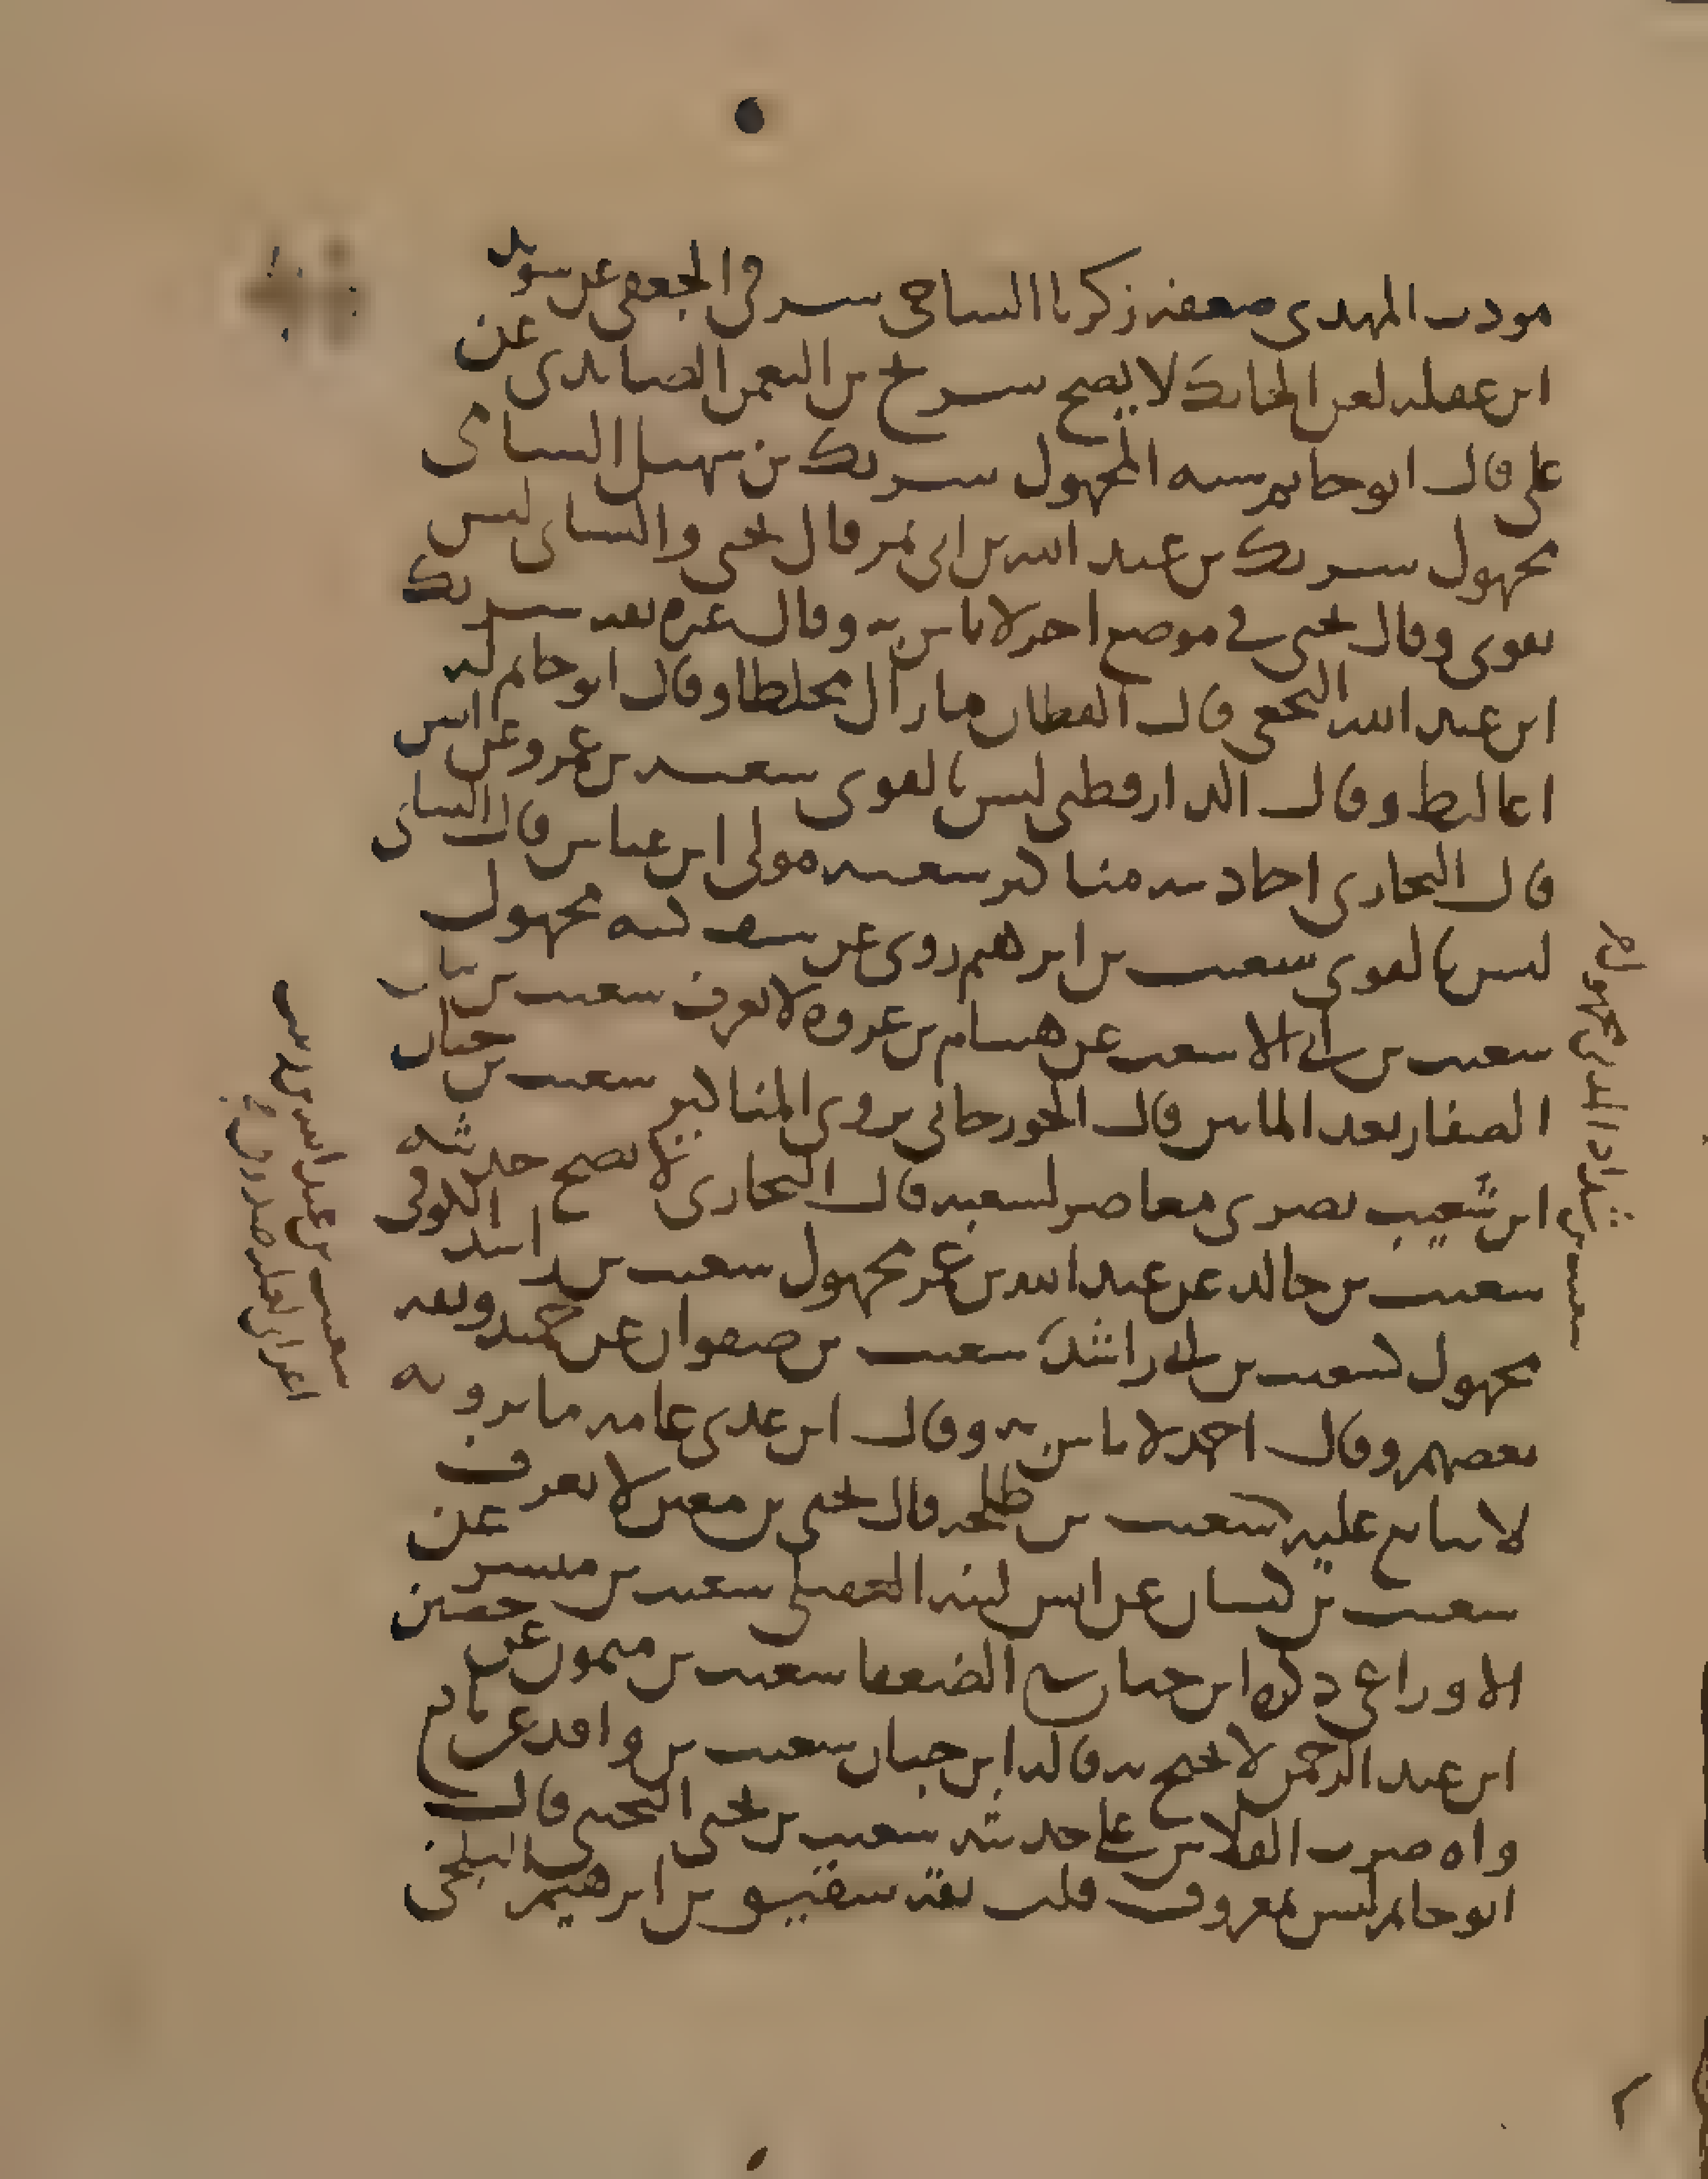 مودب المهدي ضعفه زكريا الساجي شرقي الجعفي عن سويد
ابن غفلة لعن الحايك لا يصح شريح بن النعمن الصايدي عن
علي قال ابو حاتم شبه المجهول شريك بن سهيل الشامي
مجهول شريك بن عبد الله بن ابي نمر قال يحيى والنسائي ليس
بقوي وقال يحيى في موضع اخر لا باس به وقال غيره ثقة شريك
ابن عبد الله النخعي قال القطان ما زال مخلطا وقال ابو حاتم له
اغاليط وقال الدارقطني ليس بالقوي شعبة بن عمرو عن انس
قال البخاري احاديثه مناكير شعبة مولى ابن عباس قال النسائي
ليس بالقوي شعيب بن ابرهيم روى عن سيف كتبه مجهول
شعيب بن ابي الاشعث عن هشام بن عروة لا يعرف شعيب بن بيان
الصفار بعد المايتين قال الجوزجاني يروي المناكير شعيب بن حبان
ابن شعيب بصري معاصر لشعبه قال البخاري لا يصح حديثه
شعيب بن خالد عن عبد الله بن عمر مجهول شعيب بن راشد الكوفي
مجهول شعيب بن ابي راشد شعيب بن صفوان عن حميد وثقه
بعضهم وقال احمد لا باس به وقال ابن عدي عامة ما يرويه
لا يتابع عليه شعيب بن طلحه قال يحيى بن معين لا يعرف
شعيب بن كيسان عن انس لينه العقيلي شعيب بن مبشر عن
الاوزاعي ذكره ابن حبان في الضعفا شعيب بن ميمون عن حصين
ابن عبد الرحمن لا يحتج به قاله ابن حبان شعيب بن واقد عن نافع
واه ضرب الفلاس على حديثه شعيب بن يحيى التجيبي قال
ابو حاتم ليس بمعروف قلت ثقة شقيق بن ابرهيم البلخي
شعيب بن شداد المدني مجهول